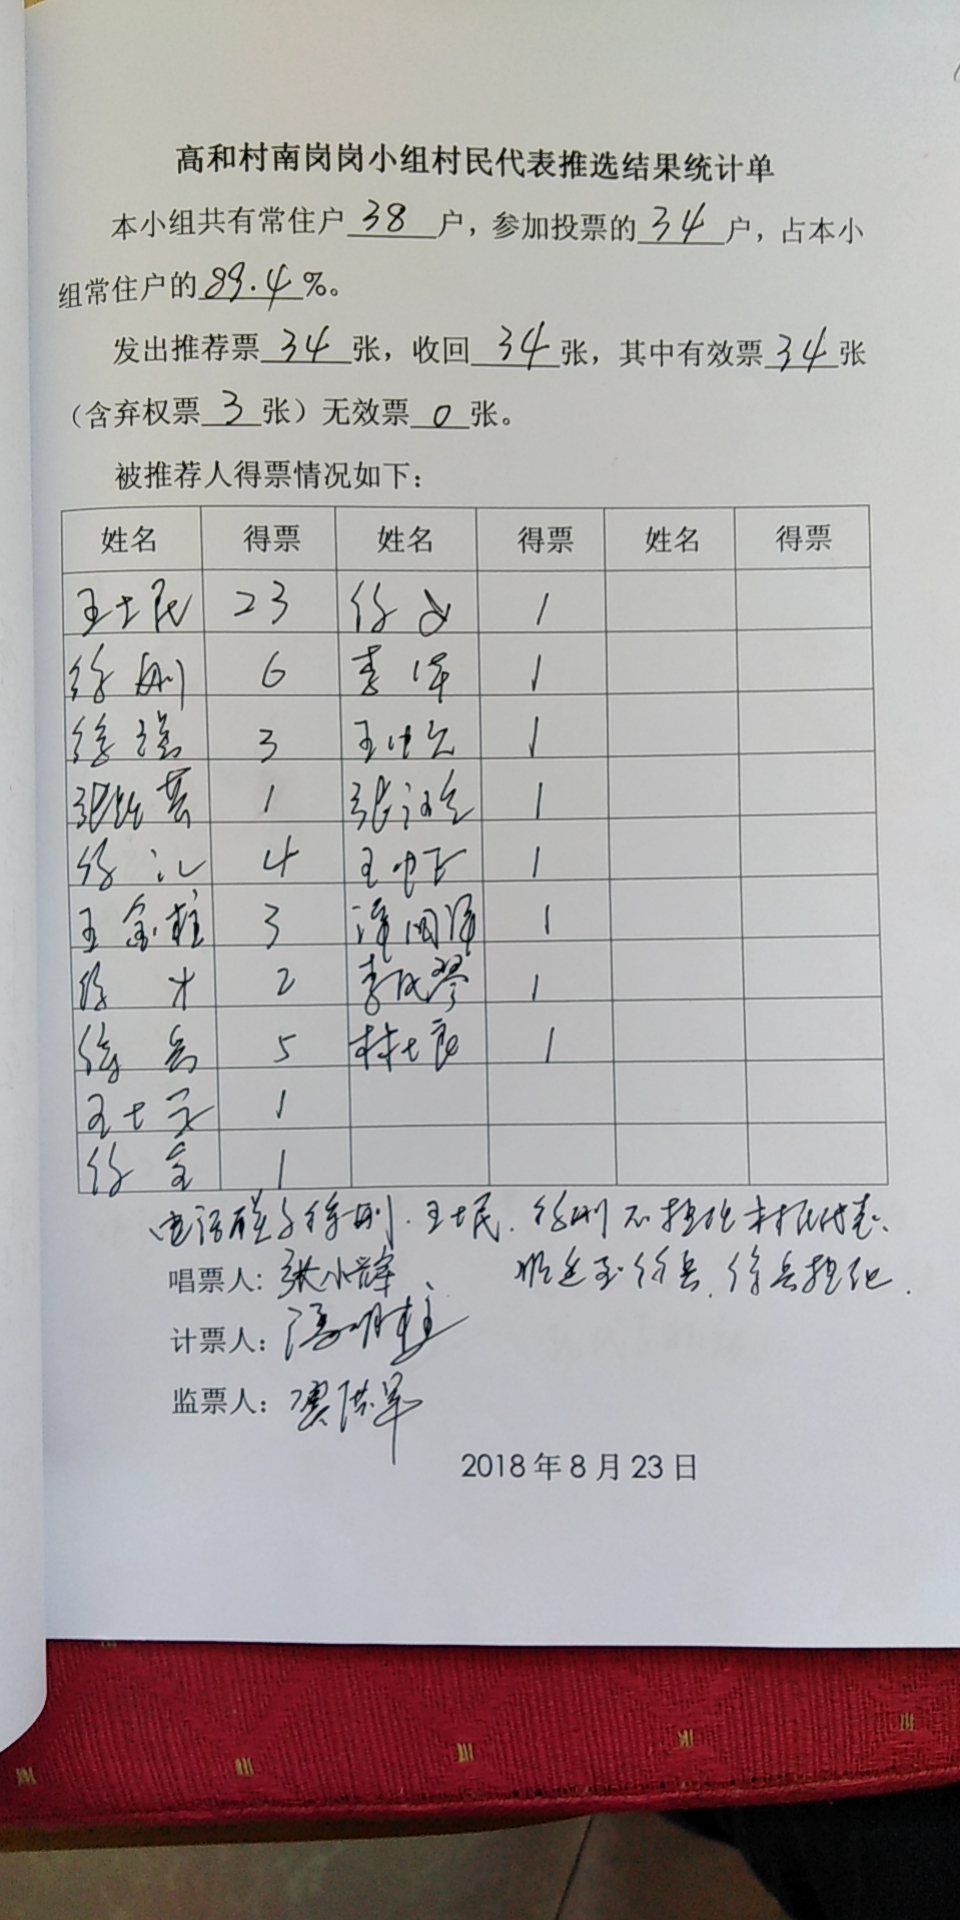 高和村南岗岗小组村民代表推选结果统计单
本小组共有常住户 38 户，参加投票的 34 户，占本小
组常住户的 89.4 %。
发出推荐票 34 张，收回 34 张，其中有效票 34 张
（含弃权票 3 张）无效票 0 张。
被推荐人得票情况如下：
姓名 得票 姓名 得票 姓名 得票
王士民 23 徐 1
徐刚 6 李 1
徐瑞 3 王 1
张 1 张 1
徐江 4 王 1
王金柱 3 1
徐才 2 李成琴 1
徐兵 5 林士良 1
王士 1
徐金 1
电话 徐刚、王士民、徐刚不担任村民代表、
唱票人：张小辉 顺延至徐兵、徐兵担任.
计票人：冯明柱
监票人：
2018 年 8 月 23 日